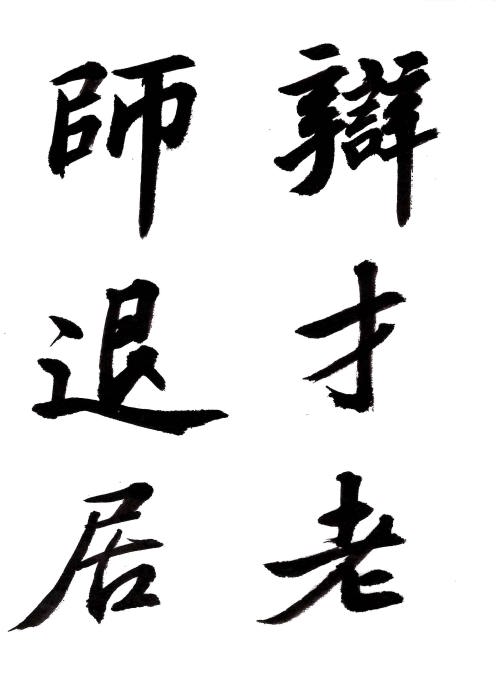 辯才老
師退居